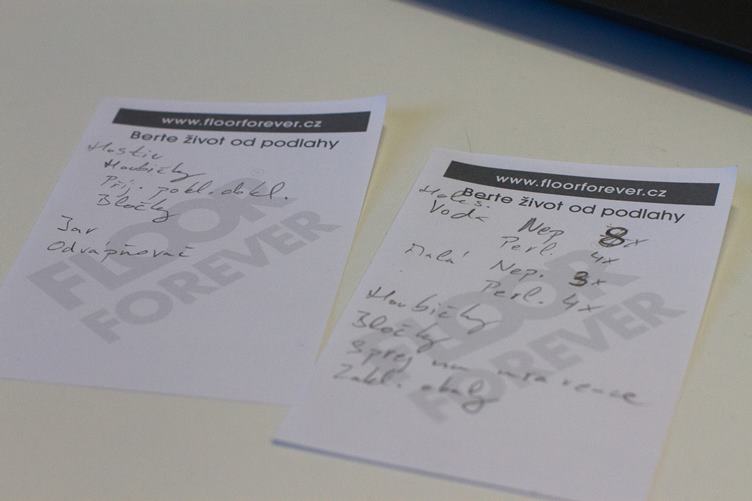 www.floorforever.cz
Berte život od podlahy
Hostiv
Houbičky
Příj. pokl. dokl.
Bločky
Jar
Odvápňovač
FLOOR
FOREVER
www.floorforever.cz
Berte život od podlahy
Holeš.
Voda Nep 8x
Perl. 4x
Malá Nep. 3x
Perl. 4x
Houbičky
Bločky
Sprej na mravence
Zakl. obaly
FLOOR
FOREVER